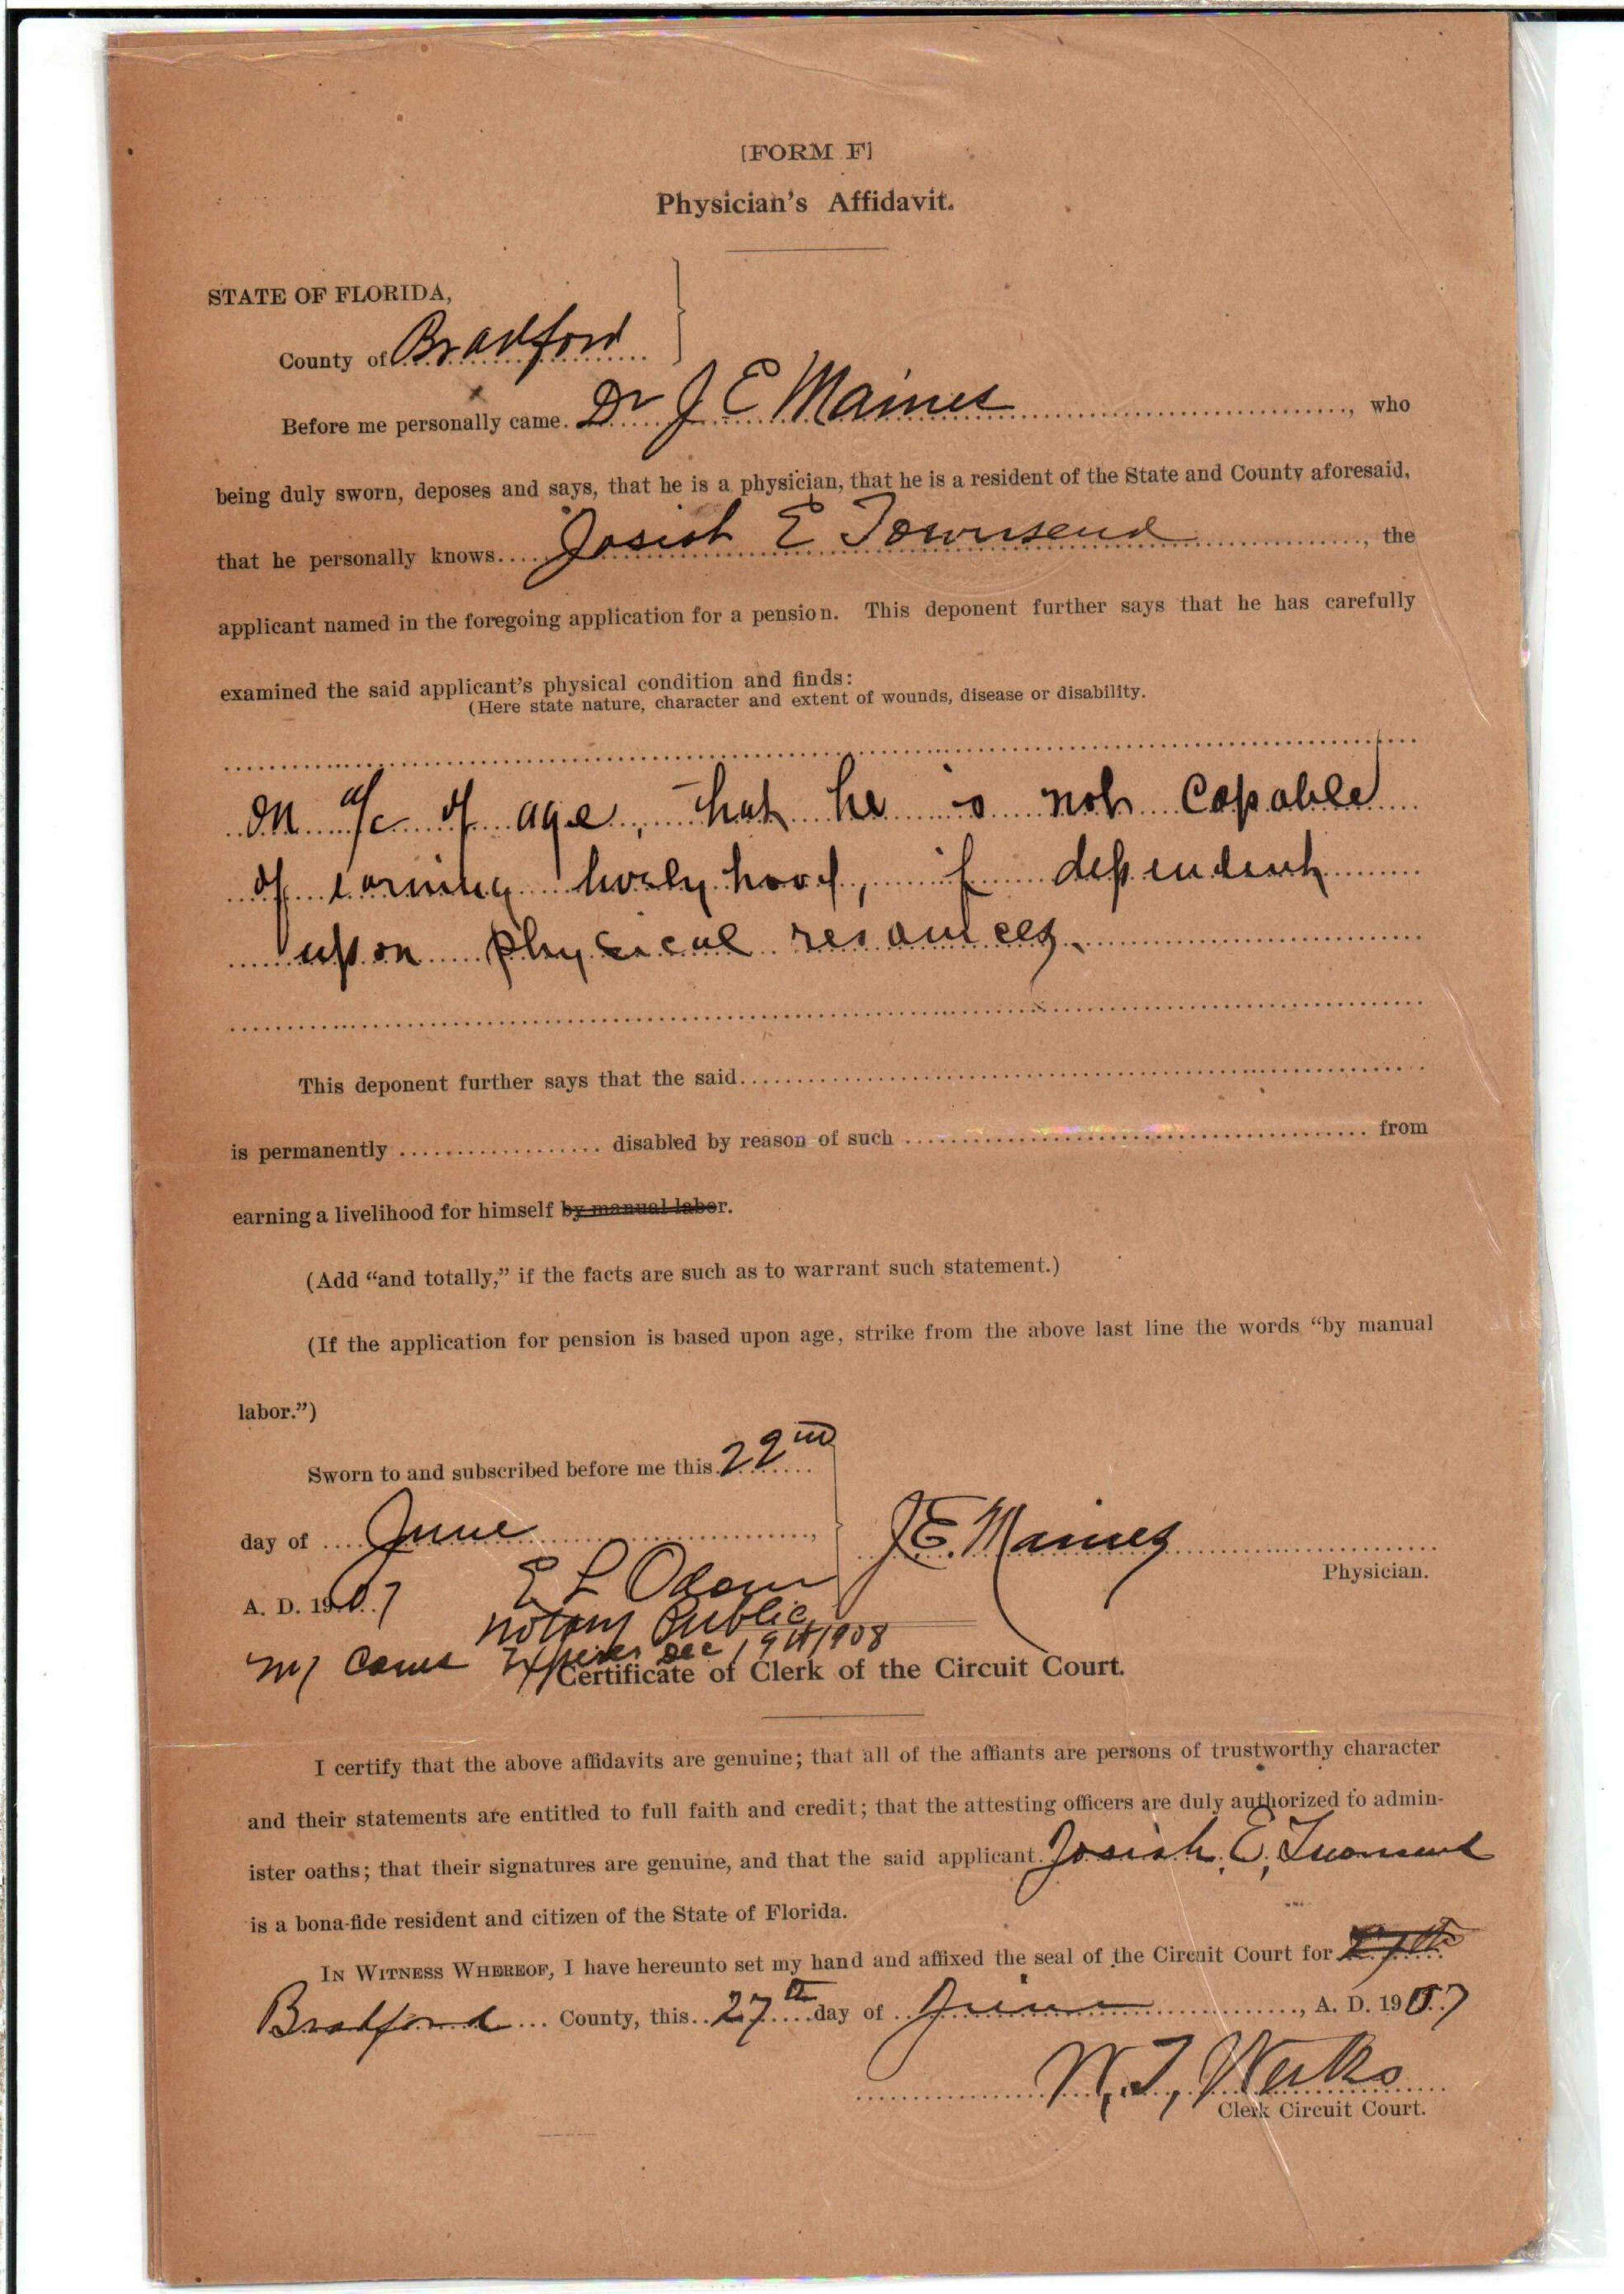 [FORM F]
Physician's Affidavit.
STATE OF FLORIDA,
County of Bradford
Before me personally came. Dr J E Maines, who
being duly sworn, deposes and says, that he is a physician, that he is a resident of the State and County aforesaid,
that he personally knows Josiah E Townsend, the
applicant named in the foregoing application for a pension. This deponent further says that he has carefully
examined the said applicant's physical condition and finds:
(Here state nature, character and extent of wounds, disease or disability.
on a/c of age, that he is not capable
of earning livelyhood, if dependent
upon physical resources.
This deponent further says that the said
is permanently disabled by reason of such from
earning a livelihood for himself by manual labor.
(Add “and totally,” if the facts are such as to warrant such statement.)
(If the application for pension is based upon age, strike from the above last line the words “by manual
labor.”)
Sworn to and subscribed before me this 22nd
day of June,
J E. Maines
Physician.
A. D. 1907
E L Odom
Notary Public
My Coms Expires Dec 19th 1908
Certificate of Clerk of the Circuit Court.
I certify that the above affidavits are genuine; that all of the affiants are persons of trustworthy character
and their statements are entitled to full faith and credit; that the attesting officers are duly authorized to admin-
ister oaths; that their signatures are genuine, and that the said applicant Josiah. E, Townsend
is a bona-fide resident and citizen of the State of Florida.
IN WITNESS WHEREOF, I have hereunto set my hand and affixed the seal of the Circuit Court for 27th
Bradford County, this 27th day of June, A. D. 1907
Clerk Circuit Court.